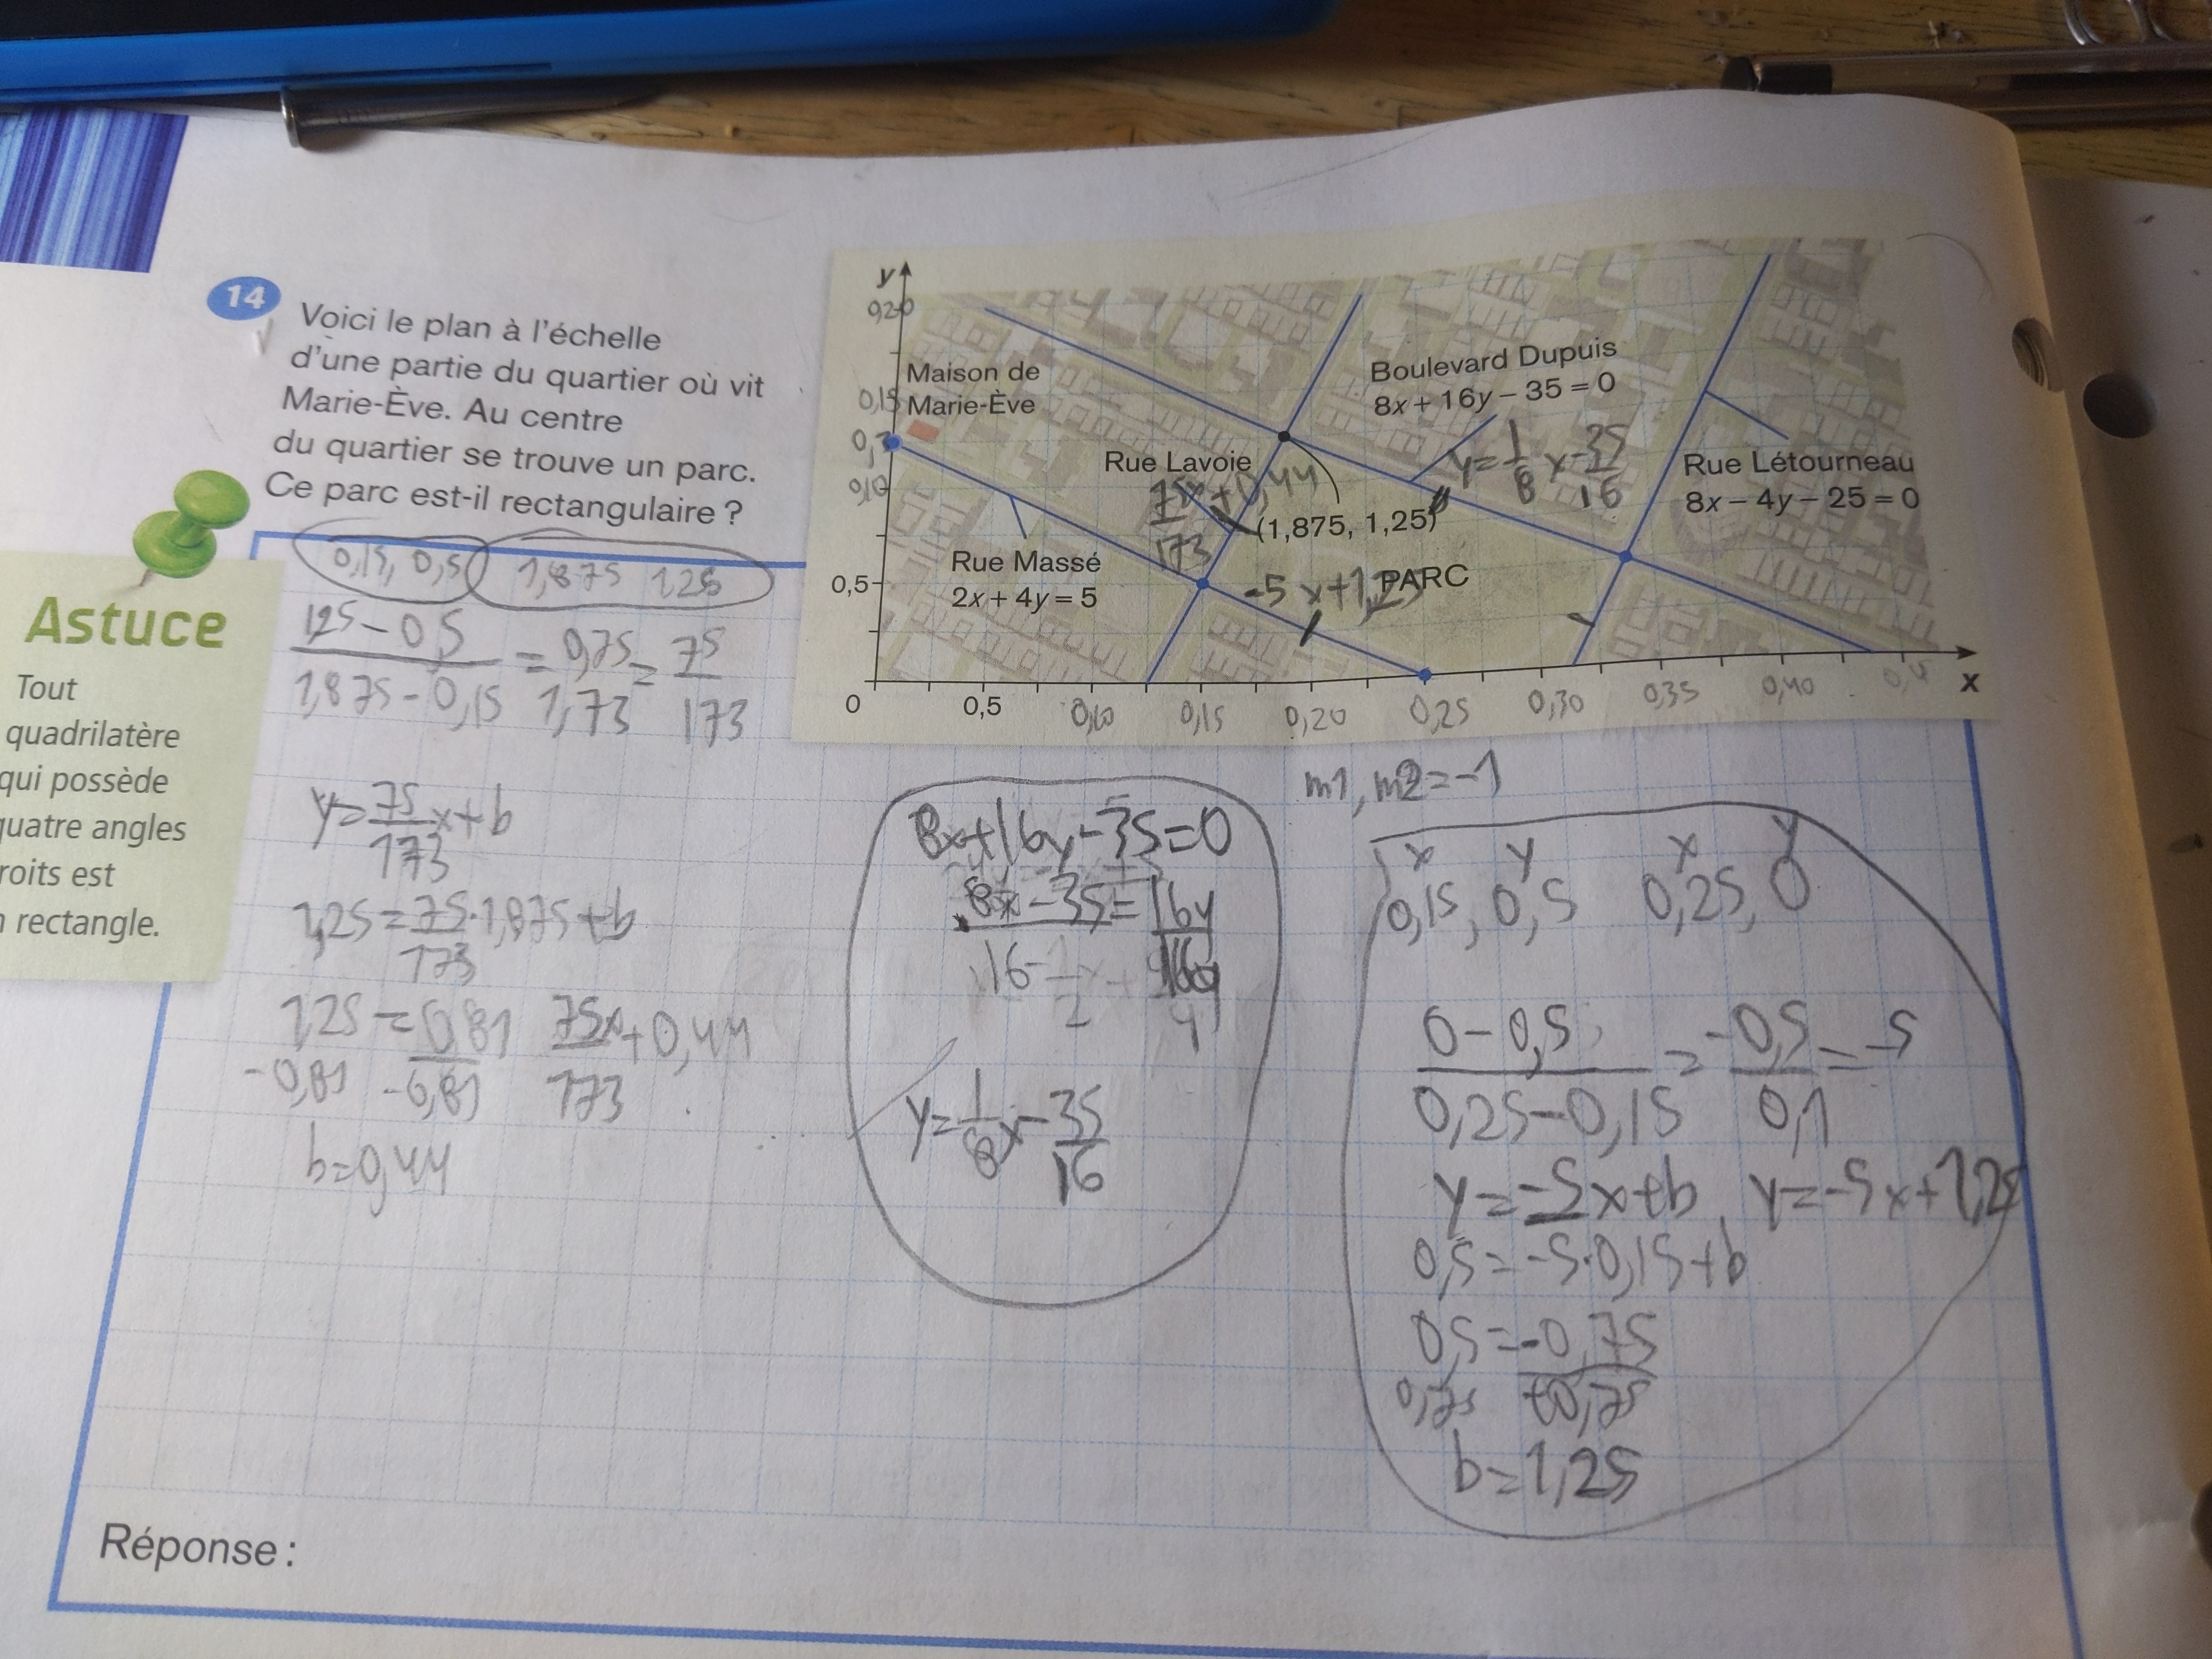 14
Voici le plan à l'échelle
d'une partie du quartier où vit
Marie-Ève. Au centre
du quartier se trouve un parc.
Ce parc est-il rectangulaire ?
Astuce
Tout
quadrilatère
qui possède
quatre angles
roits est
n rectangle.
y
0,20
Maison de
Marie-Ève
0,15
0,10
0,5
0
Boulevard Dupuis
8x + 16y – 35 = 0
y=1/8 x-35/16
Rue Lavoie
75x/173+0,44
(1,875, 1,25)
Rue Létourneau
8x – 4y – 25 = 0
Rue Massé
2x + 4y = 5
-5x+1,25
PARC
0,5 0,10 0,15 0,20 0,25 0,30 0,35 0,40
x
0,15, 0,5 1,875 1,25
125-0,5/1,875-0,15 = 0,75/1,73 = 75/173
y=75/173x+b
1,25=75/173·1,875+b
1,25=0,81 75x/173+0,44
-0,81 -0,81
b=0,44
8x+16y-35=0
8x-35=16y
16
y=1/8x-35/16
m1, m2=-1
x y x y
0,15, 0,5 0,25, 0
0-0,5/0,25-0,15 = -0,5/0,1 = -5
y=-5x+b y=-5x+1,25
0,5=-5·0,15+b
0,5=-0,75
0,75 +0,75
b=1,25
Réponse :